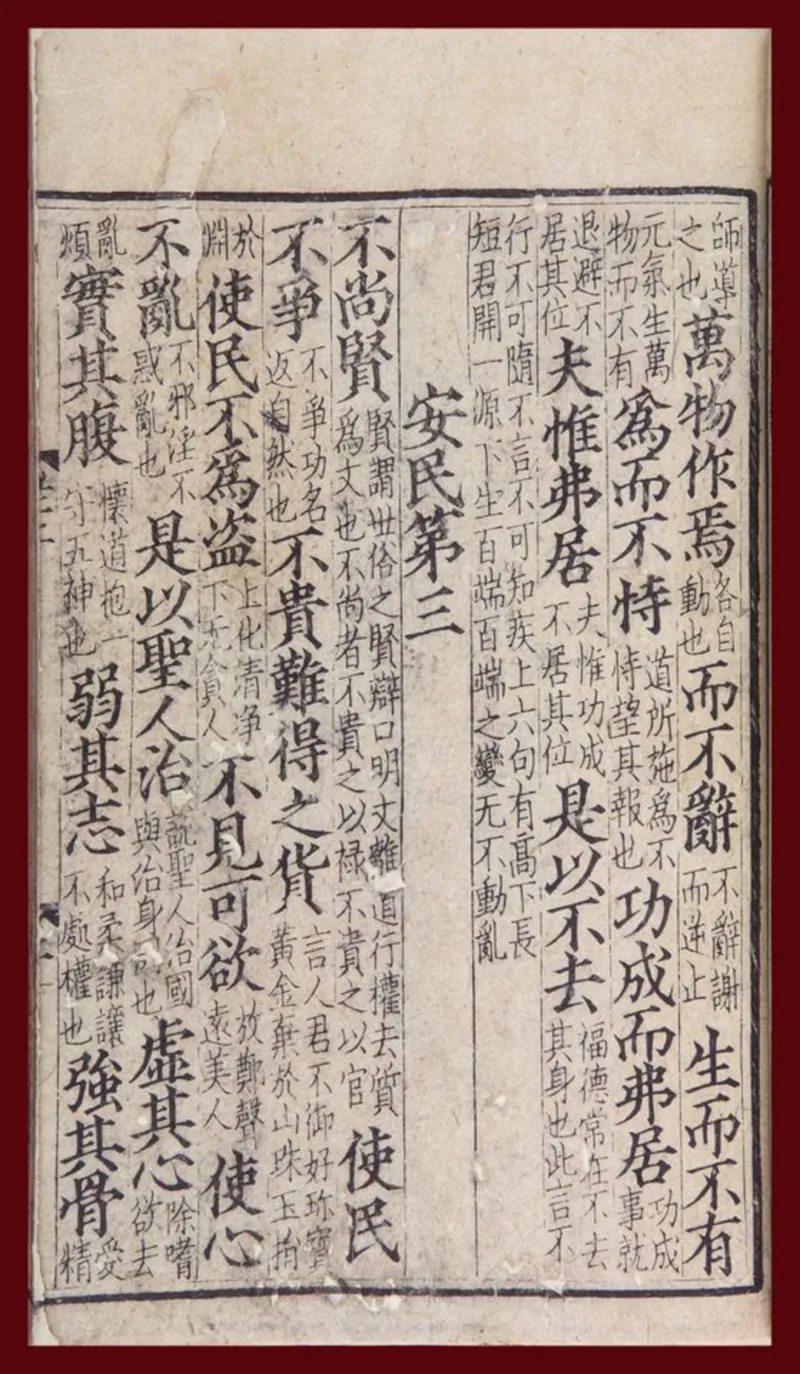 師導之也萬物作焉各自動也而不辭不辭謝而逆止生而不有
元氣生萬物而不有爲而不恃道所施爲不恃望其報也功成而弗居功成事就
退避不居其位夫惟弗居夫惟功成不居其位是以不去福德常在不去其身也此言不
行不可隨不言不可知疾上六句有髙下長短君開一源下生百端百端之變无不動亂
安民第三
不尚賢賢謂世俗之賢辯口明文離道行權去質爲文也不尚者不貴之以禄不貴之以官使民
不爭不爭功名返自然也不貴難得之貨言人君不御好珎寶黃金棄於山珠玉捐
於淵使民不爲盗上化清净下无貪人不見可欲放鄭聲遠美人使心
不亂不邪淫不惑亂也是以聖人治說聖人治國與治身同也虛其心除嗜欲去
亂煩實其腹懷道抱一守五神也弱其志和柔謙讓不處權也強其骨愛精